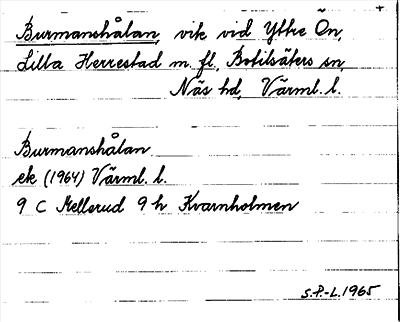 Burmanshålan, vik vid Yttre Ön,
Lilla Herrestad m. fl., Botilsäters sn,
Näs hd, Värml. l.
Burmanshålan
ek (1964) Värml. l.
9 C Mellerud 9 h Kvarnholmen
S.P.-L. 1965